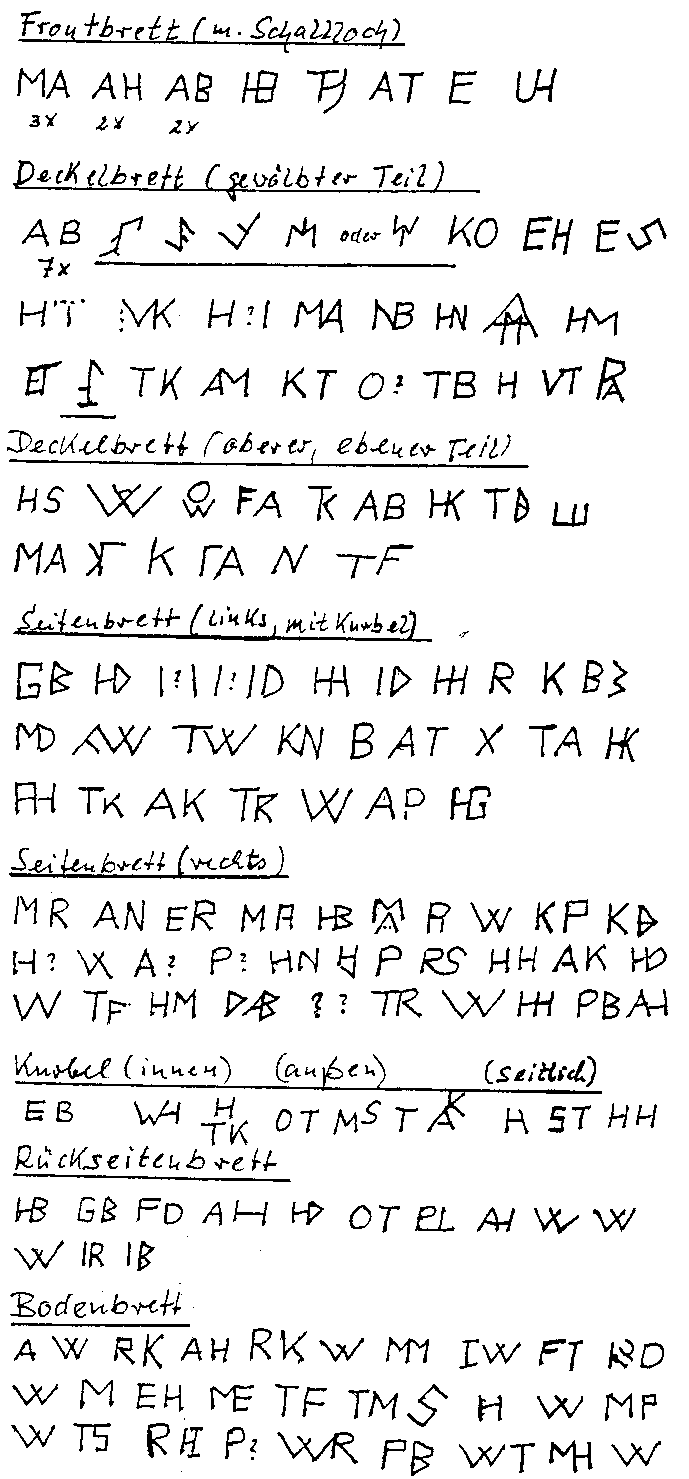 Frontbrett (m. Schallloch)
MA AH AB HB TH AT E UH
3x 2x 2x
Deckelbrett (gewölbter Teil)
AB oder KO EH E
7x
H T VK H ? I MA NB HN HM
ET TK AM KT O? TB H VT RA
Deckelbrett (oberer, ebener Teil)
HS W FA TK AB HK TD
MA K ΓA N TF
Seitenbrett (links, mit Kurbel)
GB HD I?I I?ID HH ID HH R K B
MD AW TW KN B AT X TA HK
FH TK AK TR W AP HG
Seitenbrett (rechts)
MR AN ER MA HB MA R W KP KD
H? A? P? HN H P RS HH AK HD
W TF HM DAB ? ? TR W HH PB AH
Knobel (innen) (außen) (seitlich)
EB WH H OT MS T AK H ST HH
TK
Rückseitenbrett
HB GB FD AH HD OT PL AH W W
W IR IB
Bodenbrett
A W RK AH RK W MM IW FT D
W M EH ME TF TM S H W MP
W TS R HI P? WR PB WT MH W